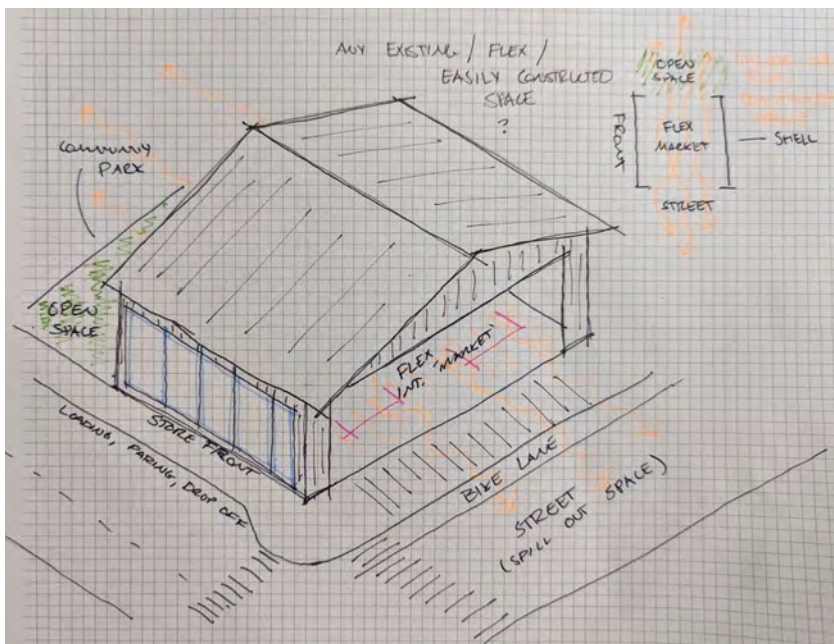 ANY EXISTING / FLEX /
EASILY CONSTRUCTED
SPACE
?
OPEN
SPACE
FRONT
FLEX
MARKET
SHELL
STREET
COMMUNITY
PARK
OPEN
SPACE
FLEX
INT. 'MARKET'
STORE FRONT
LOADING, PARING, DROP OFF
BIKE LANE
STREET
(SPILL OUT SPACE)